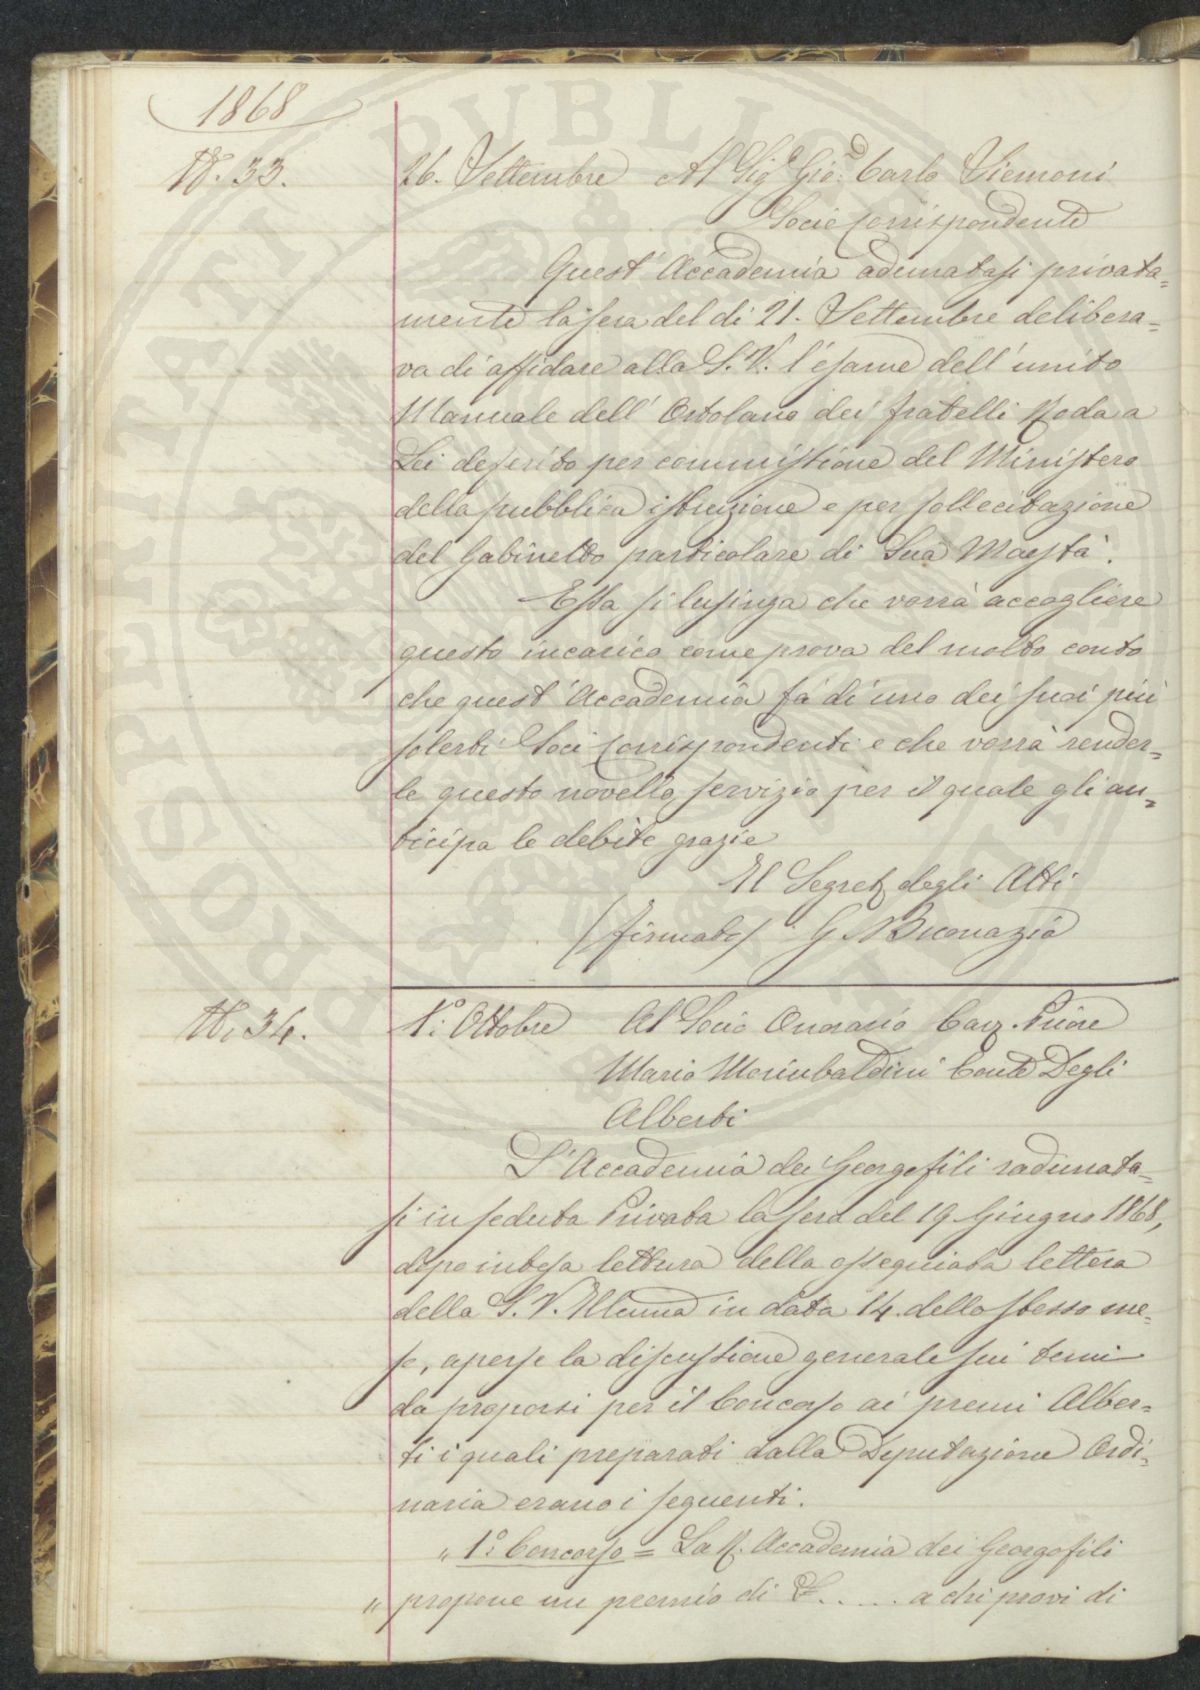 1868
N. 33.
26. Settembre Al Sigr Gio: Carlo Siemoni
Socio Corrispondente
Quest' Accademia adunatasi privata=
mente la sera del di 21. Settembre delibera=
va di affidare alla S. V. l'esame dell' unito
Manuale dell' Ortolano dei fratelli Roda a
Lei deferito per commissione del Ministero
della pubblica istruzione e per sollecitazione
del Gabinetto particolare di Sua Maestà.
Essa si lusinga che vorrà accogliere
questo incarico come prova del molto conto
che quest' Accademia fà di uno dei suoi più
solerti Soci Corrispondenti e che vorrà render=
le questo novello servizio per il quale gli an=
ticipa le debite grazie
Il Segret. degli Atti
(firmato) G Buonazia
N. 34.
1.° Ottobre Al Socio Onorario Cav. Priore
Mario Morinbaldini Conte Degli
Alberti
L'Accademia dei Georgofili radunata=
si in seduta Privata la sera del 19 Giugno 1868,
dopo intesa lettura della ossequiata lettera
della S. V. Illuma in data 14 dello stesso me=
se, aperse la discussione generale sui temi
da proporsi per il Concorso ai premi Alber=
ti i quali preparati dalla Deputazione Ordi=
naria erano i seguenti.
" 1.° Concorso = La R. Accademia dei Georgofili
" propone un premio di £..... a chi provi di
PROSPERITATI PUBLICAE